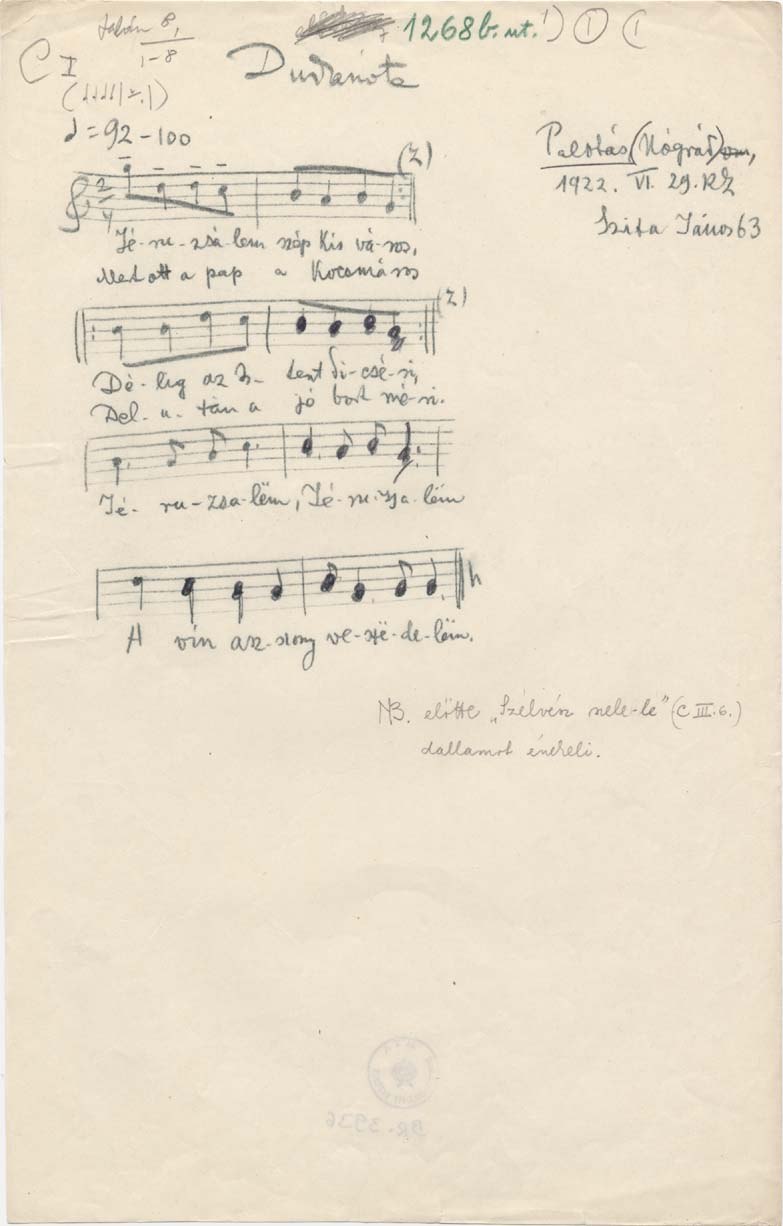 1268b. ut. 1) ① (1
8,
C I 1-8
Dudanóta
♩ = 92 - 100
Palotás (Nógrád)
1922. VI. 29. KZ
Szita János 63
(2)
2/4
Jé- ru- zsá- lem szép kis vá- ros,
Mert ott a pap a kocsmáros
(2)
Dé- lig az Is- tent di- csé- ri,
Dél- u- tán a jó bort mé- ri.
Jé- ru- zsa- lëm, Jé- ru- zsa- lëm
A vín asz- szony ve- szë- de- lëm.
NB. előtte „Szélvész nele-le" (C III. 6.)
dallamot énekli.
BR. 3936